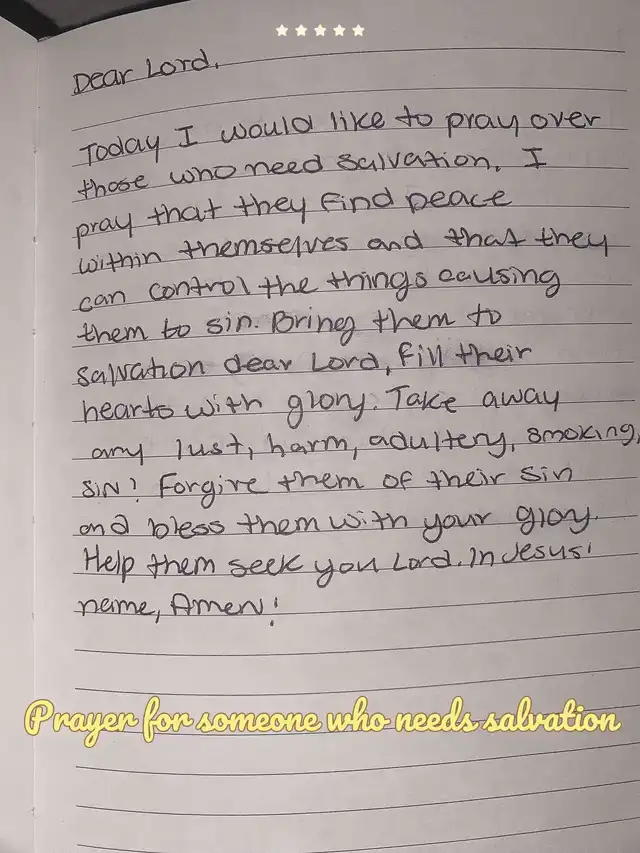 Dear Lord,
Today I would like to pray over
those who need salvation. I
pray that they find peace
within themselves and that they
can control the things causing
them to sin. Bring them to
salvation dear Lord, fill their
hearts with glory. Take away
any lust, harm, adultery, smoking,
sin! Forgive them of their sin
and bless them with your glory.
Help them seek you Lord. In Jesus'
name, Amen!
Prayer for someone who needs salvation